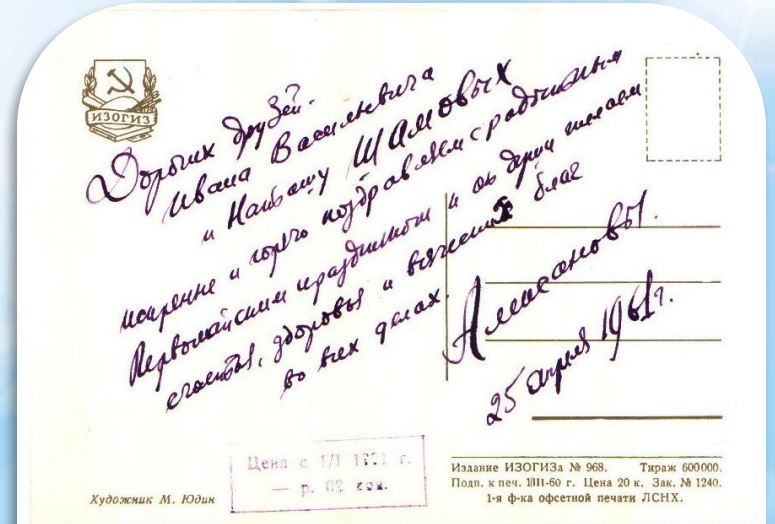 ИЗОГИЗ
Дорогих друзей.
Ивана Васильевича
и Наташу ШАМОВЫХ
искренне и горячо поздравляем с радостным
Первомайским праздником и от души желаем
счастья, здоровья и всяческих благ
во всех делах.
25 апреля 1961г.
Цена с 1/I 1961 г.
— р. 02 коп.
Художник М. Юдин
Издание ИЗОГИЗа № 968. Тираж 600000.
Подп. к печ. 1/III-60 г. Цена 20 к. Зак. № 1240.
1-я ф-ка офсетной печати ЛСНХ.